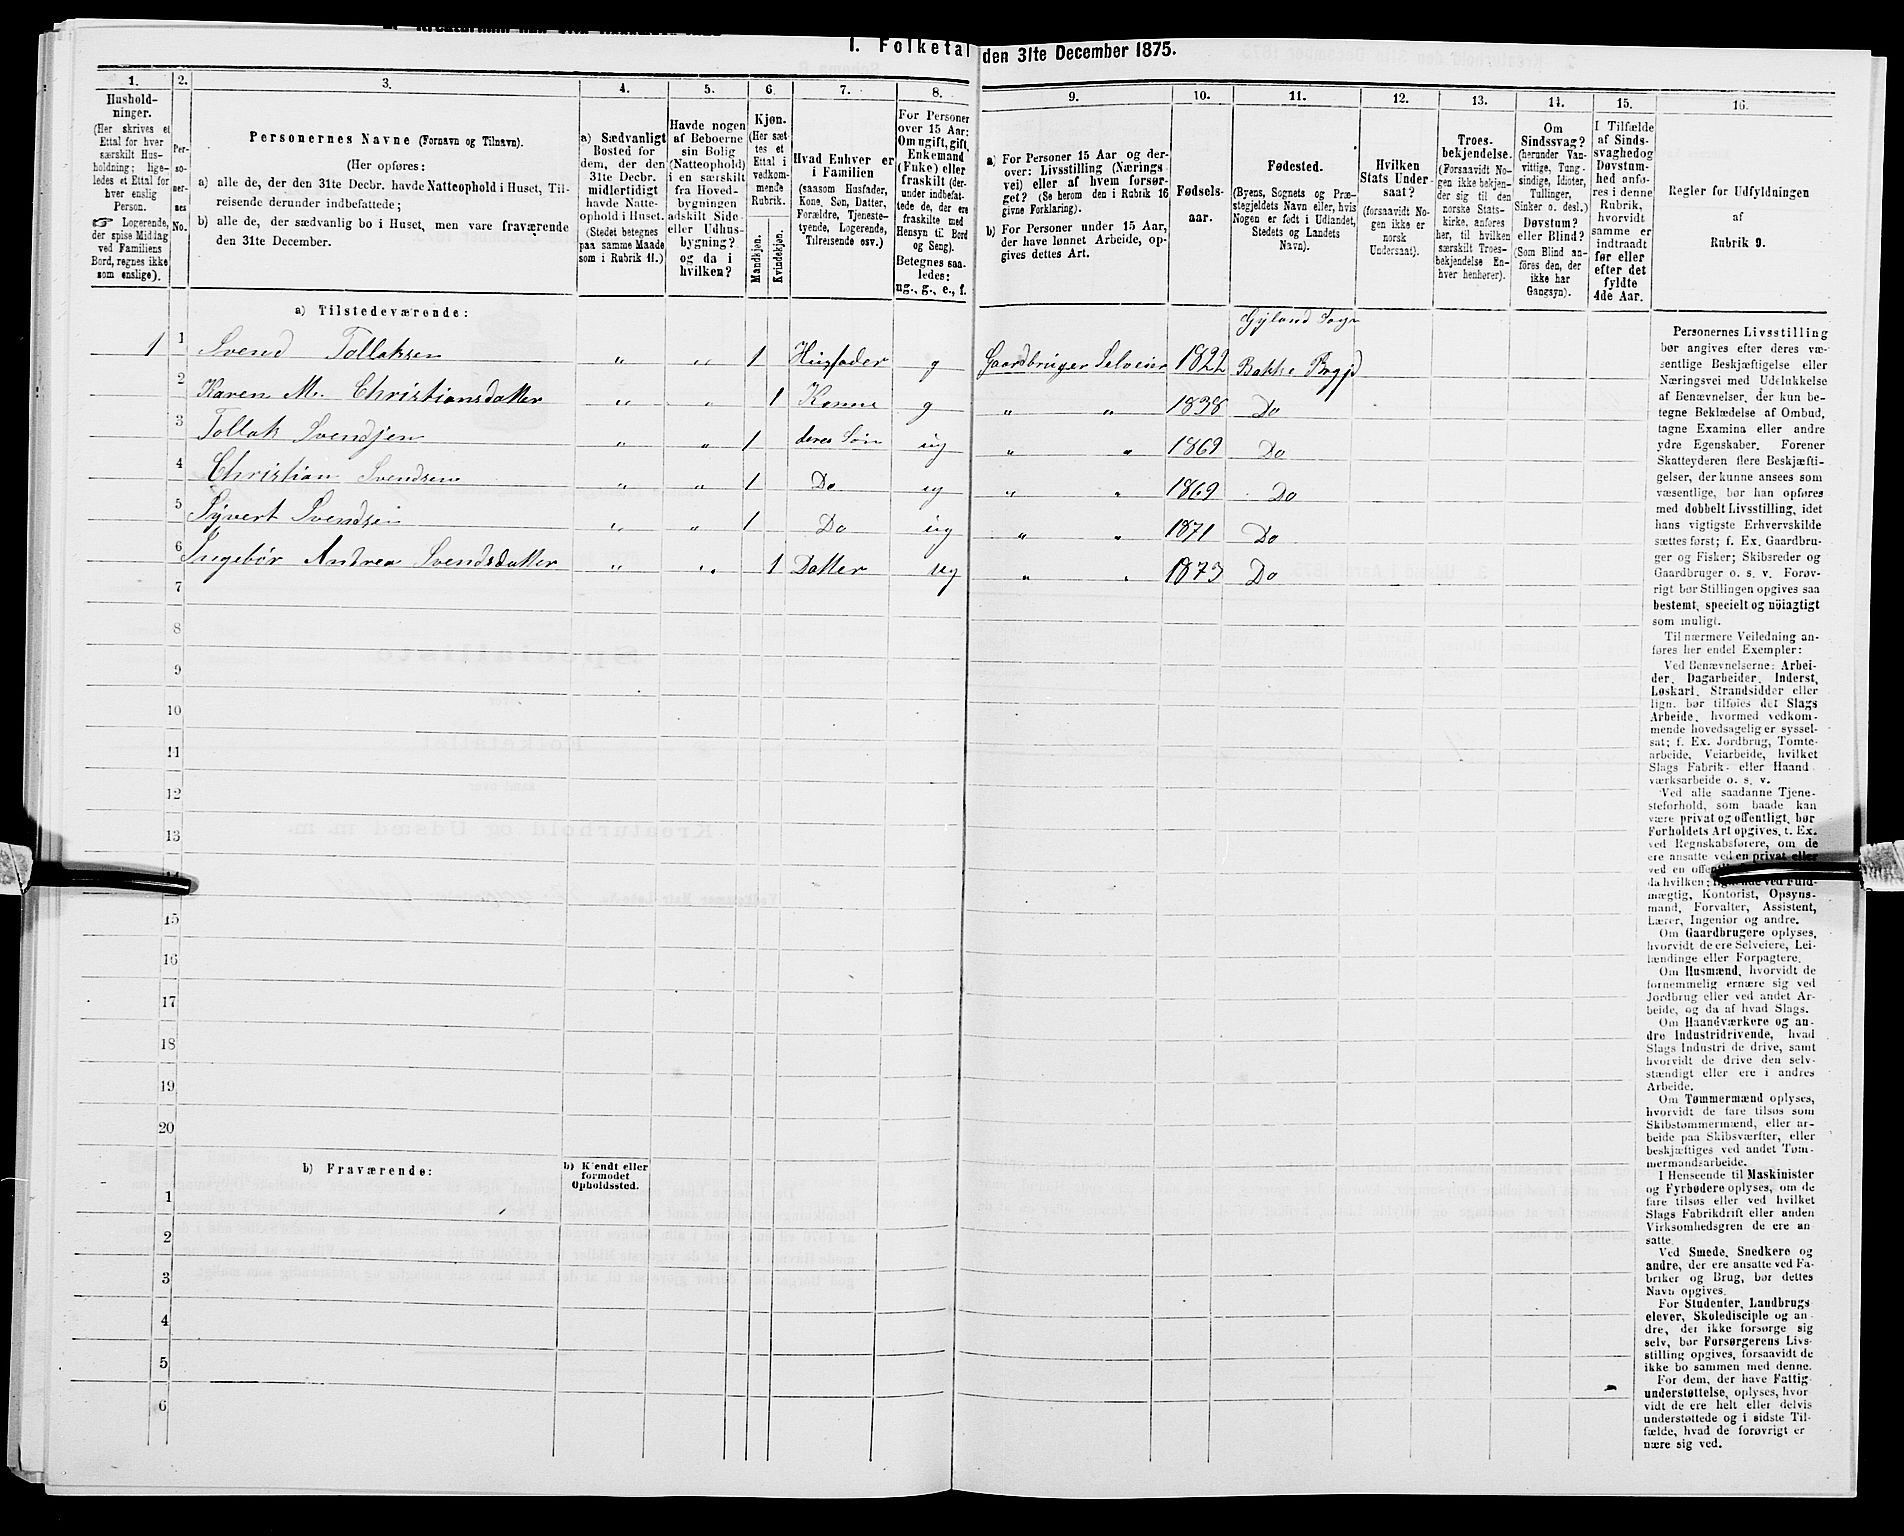 I. Folketal den 31te December 1875.
1. 2. 3. 4. 5. 6. 7. 8. 9. 10. 11. 12. 13. 14. 15. 16.
Hushold-
ninger.
(Her skrives et
Ettal for hver
særskilt Hus-
holdning; lige-
ledes et Ettal for
hver enslig
Person.
☞ Logerende,
der spise Middag
ved Familiens
Bord, regnes ikke
som enslige).
Per-
so-
ner-
nes
No.
Personernes Navne (Fornavn og Tilnavn).
(Her opføres:
a) alle de, der den 31te Decbr. havde Natteophold i Huset, Til-
reisende derunder indbefattede;
b) alle de, der sædvanlig bo i Huset, men vare fraværende
den 31te December.
a) Sædvanligt
Bosted for
dem, der den
31te Decbr.
midlertidigt
havde Natte-
ophold i Huset.
(Stedet betegnes
paa samme Maade
som i Rubrik 11.)
Havde nogen
af Beboerne
sin Bolig
(Natteophold)
i en særskilt
fra Hoved-
bygningen
adskilt Side-
eller Udhus-
bygning?
og da i
hvilken?
Kjøn.
(Her sæt-
tes et
Ettal i
vedkom-
mende
Rubrik.
Mandkjøn.
Kvindekjøn.
Hvad Enhver er
i Familien
(saasom Husfader,
Kone, Søn, Datter,
Forældre, Tjeneste-
tyende, Logerende,
Tilreisende osv.)
For Personer
over 15 Aar:
Om ugift, gift,
Enkemand
(Enke) eller
fraskilt (der-
under indbefat-
tede de, der ere
fraskilte med
Hensyn til Bord
og Seng).
Betegnes saa-
ledes:
ug., g., e., f.
a) For Personer 15 Aar og der-
over: Livsstilling (Nærings-
vei) eller af hvem forsør-
get? (Se herom den i Rubrik 16
givne Forklaring).
b) For Personer under 15 Aar,
der have lønnet Arbeide, op-
gives dettes Art.
Fødsels-
aar.
Fødested.
(Byens, Sognets og Præ-
stegjeldets Navn eller, hvis
Nogen er født i Udlandet,
Stedets og Landets
Navn).
Hvilken
Stats Under-
saat?
(forsaavidt No-
gen ikke er
norsk
Undersaat).
Troes-
bekjendelse.
(Forsaavidt No-
gen ikke bekjen-
der sig til den
norske Stats-
kirke, anføres
her, til hvilken
særskilt Troes-
bekjendelse En-
hver henhører).
Om
Sindssvag?
(herunder Van-
vittige, Tung-
sindige, Idioter,
Tullinger,
Sinker o. desl.)
Døvstum?
eller Blind?
(Som Blind an-
føres den, der
ikke har
Gangsyn).
I Tilfælde
af Sinds-
svaghed og
Døvstum-
hed anfø-
res i denne
Rubrik,
hvorvidt
samme er
indtraadt
før eller
efter det
fyldte
4de Aar.
Regler for Udfyldningen
af
Rubrik 9.
a) Tilstedeværende:
Gyland Sogn
1 1 Svend Tollaksen „ „ 1 Husfader g Gaardbruger Selveier 1822 Bakke Prgjd
2 Karen M. Christiansdatter „ „ 1 Kone g „ „ 1838 Do
3 Tollak Svendsen „ „ 1 deres Søn ug „ „ 1862 Do
4 Christian Svendsen „ „ 1 Do ug „ „ 1869 Do
5 Syvert Svendsen „ „ 1 Do ug „ „ 1871 Do
6 Ingebør Andrea Svendsdatter „ „ 1 Datter ug „ „ 1873 Do
7
8
9
10
11
12
13
15
16
17
18
19
20
b) Fraværende:
b) Kjendt eller
formodet
Opholdssted.
1
2
3
4
5
6
Personernes Livsstilling
bør angives efter deres væ-
sentlige Beskjæftigelse eller
Næringsvei med Udelukkelse
af Benævnelser, der kun be-
tegne Beklædelse af Ombud,
tagne Examina eller andre
ydre Egenskaber. Forener
Skatteyderen flere Beskjæfti-
gelser, der kunne ansees som
væsentlige, bør han opføres
med dobbelt Livsstilling, idet
hans vigtigste Erhvervskilde
sættes først; f. Ex. Gaardbru-
ger og Fisker; Skibsreder og
Gaardbruger o. s. v. Forøv-
rigt bør Stillingen opgives saa
bestemt, specielt og nöiagtigt
som muligt.
Til nærmere Veiledning an-
føres her endel Exempler:
Ved Benævnelserne: Arbei-
der, Dagarbeider, Inderst,
Løskarl, Strandsidder eller
lign. bør tilføies det Slags
Arbeide, hvormed vedkom-
mende hovedsagelig er syssel-
sat; f. Ex. Jordbrug, Tomte-
arbeide, Veiarbeide, hvilket
Slags Fabrik- eller Haand-
værksarbeide o. s. v.
Ved alle saadanne Tjene-
steforhold, som baade kan
være privat og offentligt, bør
Forholdets Art opgives, t. Ex.
ved Regnskabsførere, om de
ere ansatte ved en privat eller
ved en
da hvilken;
mægtig, Kontorist, Opsyns-
mand, Forvalter, Assistent,
Lærer, Ingeniør og andre.
Om Gaardbrugere oplyses,
hvorvidt de ere Selveiere, Lei-
lændinge eller Forpagtere.
Om Husmænd, hvorvidt de
fornemmelig ernære sig ved
Jordbrug eller ved andet Ar-
beide, og da af hvad Slags.
Om Haandværkere og an-
dre Industridrivende, hvad
Slags Industri de drive, samt
hvorvidt de drive den selv-
stændigt eller ere i andres
Arbeide.
Om Tømmermænd oplyses,
hvorvidt de fare tilsøs som
Skibstømmermænd, eller ar-
beide paa Skibsværfter, eller
beskjæftiges ved andet Tøm-
mermandsarbeide.
I Henseende til Maskinister
og Fyrbødere oplyses, om de
fare tilsøs eller ved hvilket
Slags Fabrikdrift eller anden
Virksomhedsgren de ere an-
satte.
Ved Smede, Snedkere og
andre, der ere ansatte ved Fa-
briker og Brug, bør dettes
Navn opgives.
For Studenter, Landbrugs-
elever, Skoledisciple og an-
dre, der ikke forsørge sig
selv, bør Forsørgerens Livs-
stilling opgives, forsaavidt de
ikke bo sammen med denne.
For dem, der have Fattig-
understøttelse, oplyses, hvor-
vidt de ere helt eller delvis
understøttede og i sidste Til-
fælde, hvad de forøvrigt er-
nære sig ved.